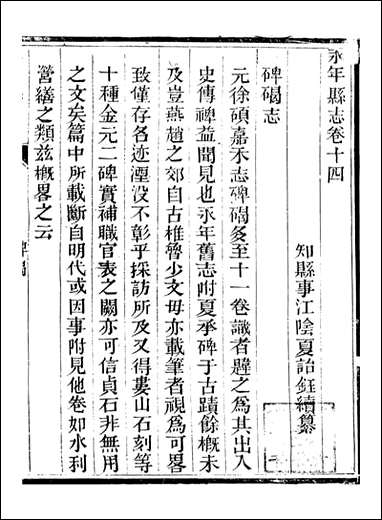 永年縣志卷十四
知縣事江陰夏詒鈺續纂
碑碣志
元徐碩嘉禾志碑碣多至十一卷識者韙之為其出入
史傳裨益聞見也永年舊志附夏承碑于古蹟餘概未
及豈燕趙之郊自古椎魯少文毋亦載筆者視為可畧
致僅存名迹湮沒不彰乎採訪所及又得婁山石刻等
十種金元二碑實補職官表之闕亦可信貞石非無用
之文矣篇中所載斷自明代或因事附見他卷如水利
營繕之類茲概畧之云
碑碣